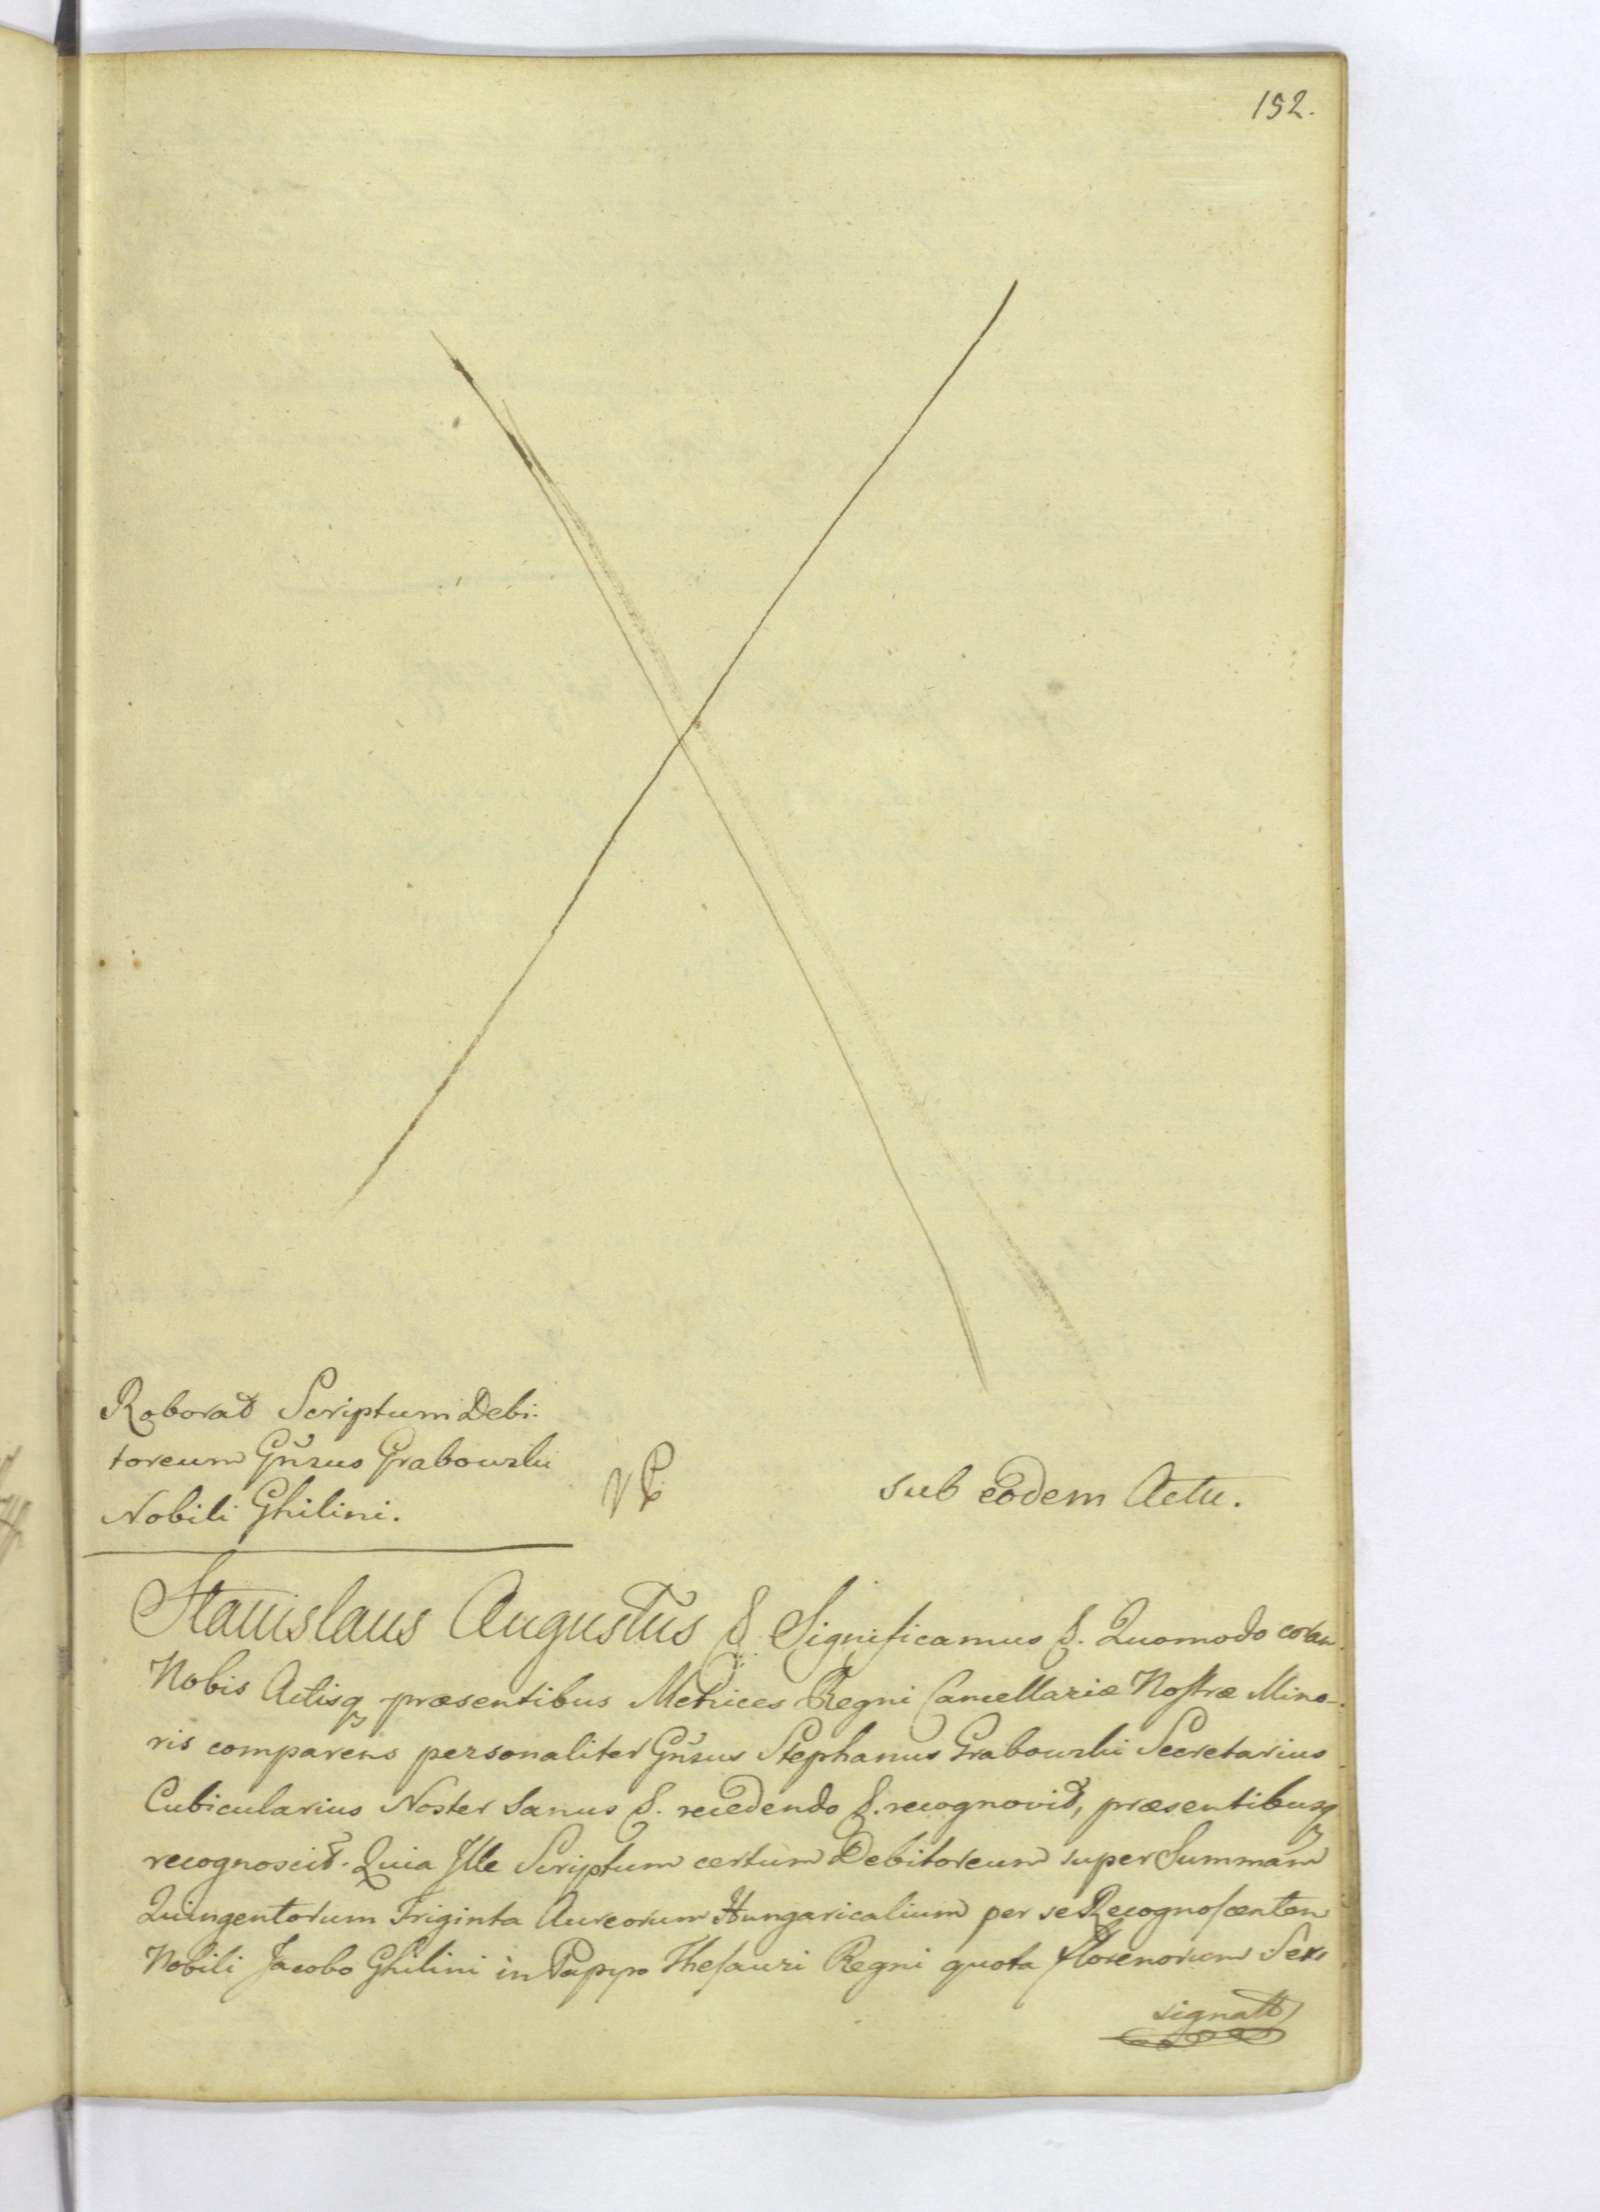 152.
Roborat Scriptum Debi-
toreum Gnsus Grabowski
Nobili Ghilini.
sub eodem Actu.
Stanislaus Augustus &. Significamus &. Quomodo coram
Nobis Actisq præsentibus Metrices Regni Cancellariæ Nostræ Mino-
ris comparens personaliter Gnsus Stephanus Grabowski Secretarius
Cubicularius Noster Sanus &. recedendo &. recognovit, præsentibusq
recognoscit. Quia Ille Scriptum certum Debitoreum super Summam
Quingentorum Triginta Aureorum Hungaricalium per se Recognoscentem
Nobili Jacobo Ghilini in Papyro Thesauri Regni quota florenorum Sex
signatt